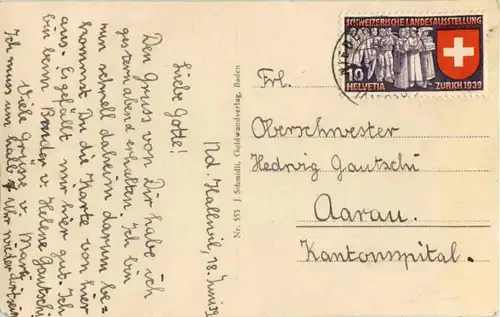 Nd. Hallwil, 18. Juni 39
Liebe Gotte!
Den Gruss von Dir habe ich
gestern abend erhalten. Ich bin
nun schnell daheim darum be-
kommst Du die Karte von hier
aus. Es gefällt mir hier gut. Ich
bin beim Bruder v. Helene Gautschi
Viele Grüsse v. Marti
Ich muss um halb 7 Uhr wieder dort sein
Nr. 553 J. Schmidli, Goldwandverlag, Baden
SCHWEIZERISCHE LANDESAUSSTELLUNG
10
HELVETIA ZÜRICH 1939
Frl.
Oberschwester
Hedwig Gautschi
Aarau.
Kantonsspital.